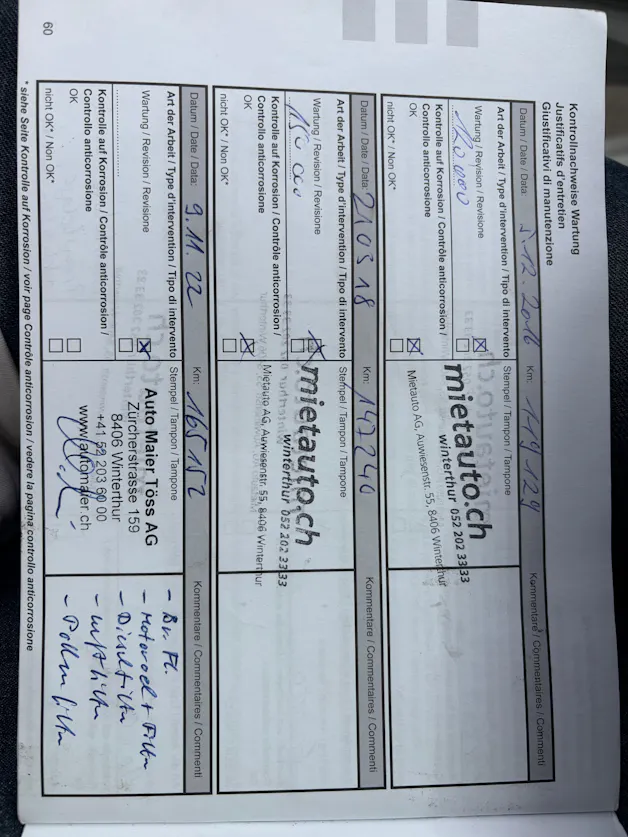 Kontrollnachweise Wartung
Justificatifs d'entretien
Giustificativi di manutenzione
Datum / Date / Data: 5.12.2016 Km: 119'129 Kommentare / Commentaires / Commenti
Art der Arbeit / Type d'intervention / Tipo di intervento Stempel / Tampon / Tampone
Wartung / Revision / Revisione
120'000
Kontrolle auf Korrosion / Contrôle anticorrosion /
Controllo anticorrosione
OK
nicht OK* / Non OK*
mietauto.ch
winterthur 052 202 3333
Mietauto AG, Auwiesenstr. 55, 8406 Winterthur
Datum / Date / Data: 210318 Km: 147240 Kommentare / Commentaires / Commenti
Art der Arbeit / Type d'intervention / Tipo di intervento Stempel / Tampon / Tampone
Wartung / Revision / Revisione
150 000
Kontrolle auf Korrosion / Contrôle anticorrosion /
Controllo anticorrosione
OK
nicht OK* / Non OK*
mietauto.ch
winterthur 052 202 3333
Mietauto AG, Auwiesenstr. 55, 8406 Winterthur
Datum / Date / Data: 9.11.22 Km: 165152 Kommentare / Commentaires / Commenti
Art der Arbeit / Type d'intervention / Tipo di intervento Stempel / Tampon / Tampone
Wartung / Revision / Revisione
Kontrolle auf Korrosion / Contrôle anticorrosion /
Controllo anticorrosione
OK
nicht OK* / Non OK*
Auto Maier Töss AG
Zürcherstrasse 159
8406 Winterthur
+41 52 203 66 00
www.automaier.ch
- Br. Fl.
- Motoroel + Filter
- Dieselfilter
- Luftfilter
- Pollenfilter
* siehe Seite Kontrolle auf Korrosion / voir page Contrôle anticorrosion / vedere la pagina controllo anticorrosione
60